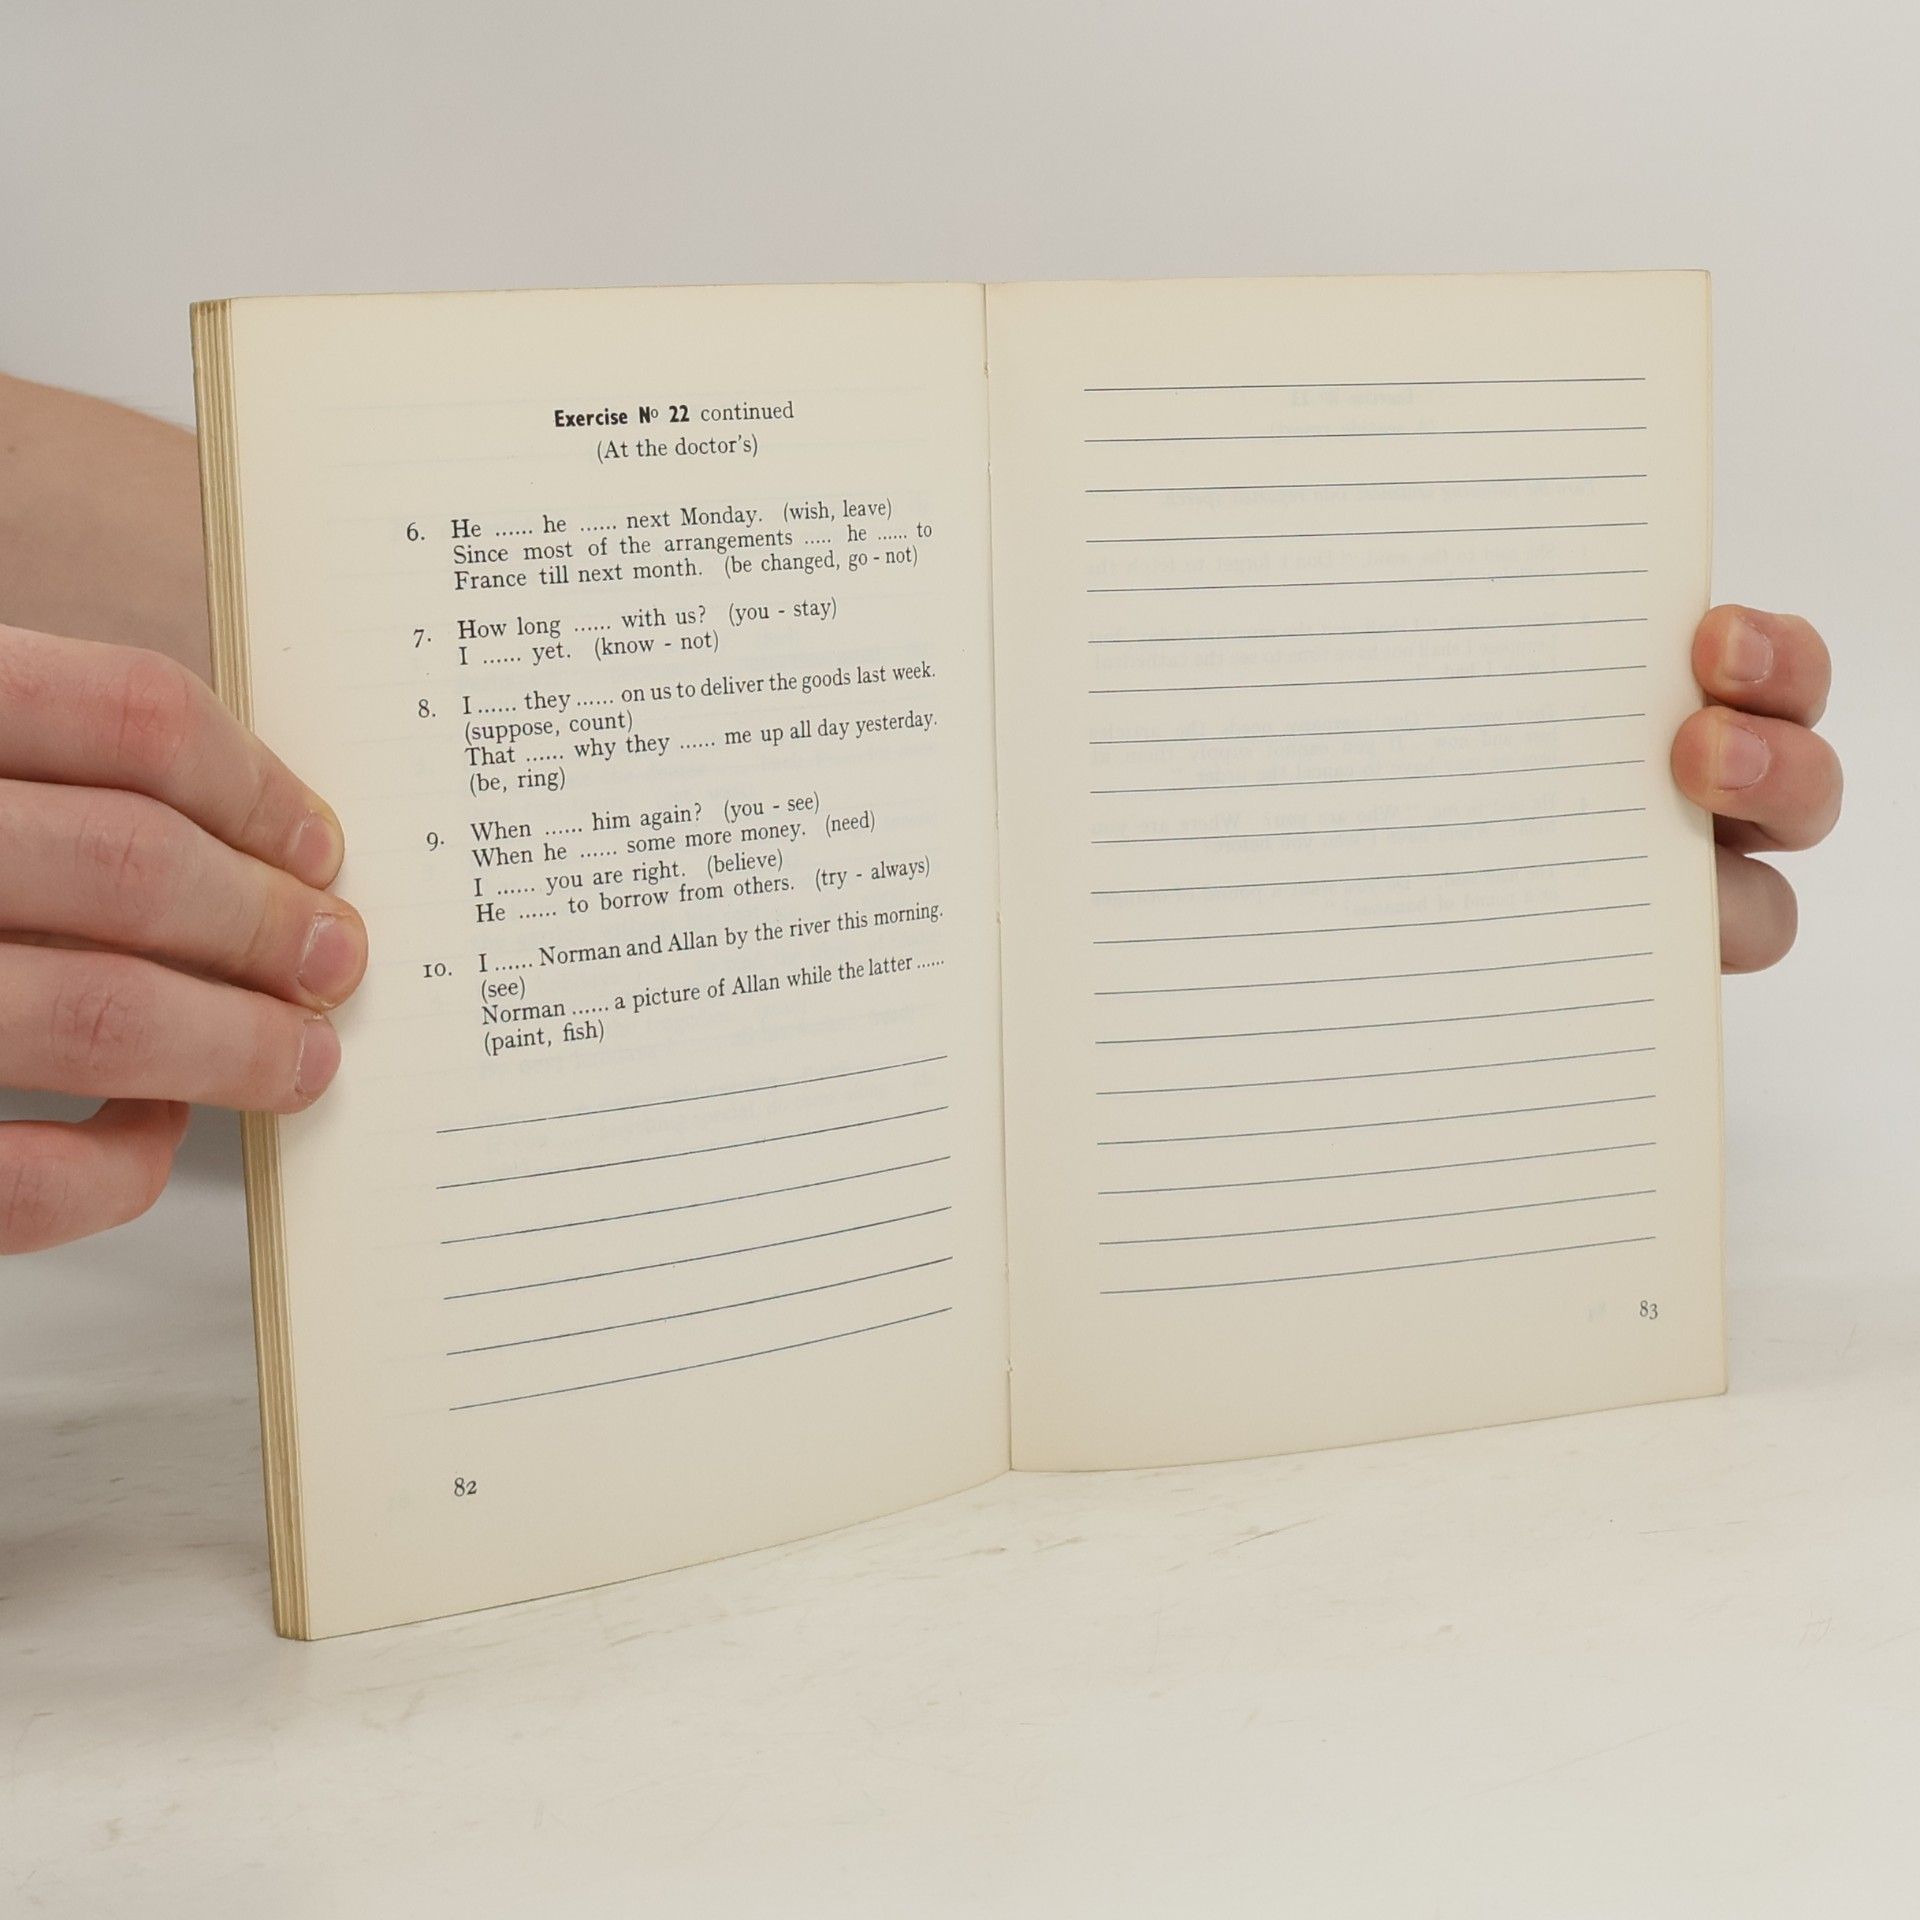 Exercise Nº 22 continued
(At the doctor's)
6. He ...... he ...... next Monday. (wish, leave)
Since most of the arrangements ..... he ...... to
France till next month. (be changed, go - not)
7. How long ...... with us? (you - stay)
I ...... yet. (know - not)
8. I ...... they ...... on us to deliver the goods last week.
(suppose, count)
That ...... why they ...... me up all day yesterday.
(be, ring)
9. When ...... him again? (you - see)
When he ...... some more money. (need)
I ...... you are right. (believe)
He ...... to borrow from others. (try - always)
10. I ...... Norman and Allan by the river this morning.
(see)
Norman ...... a picture of Allan while the latter ......
(paint, fish)
82
83